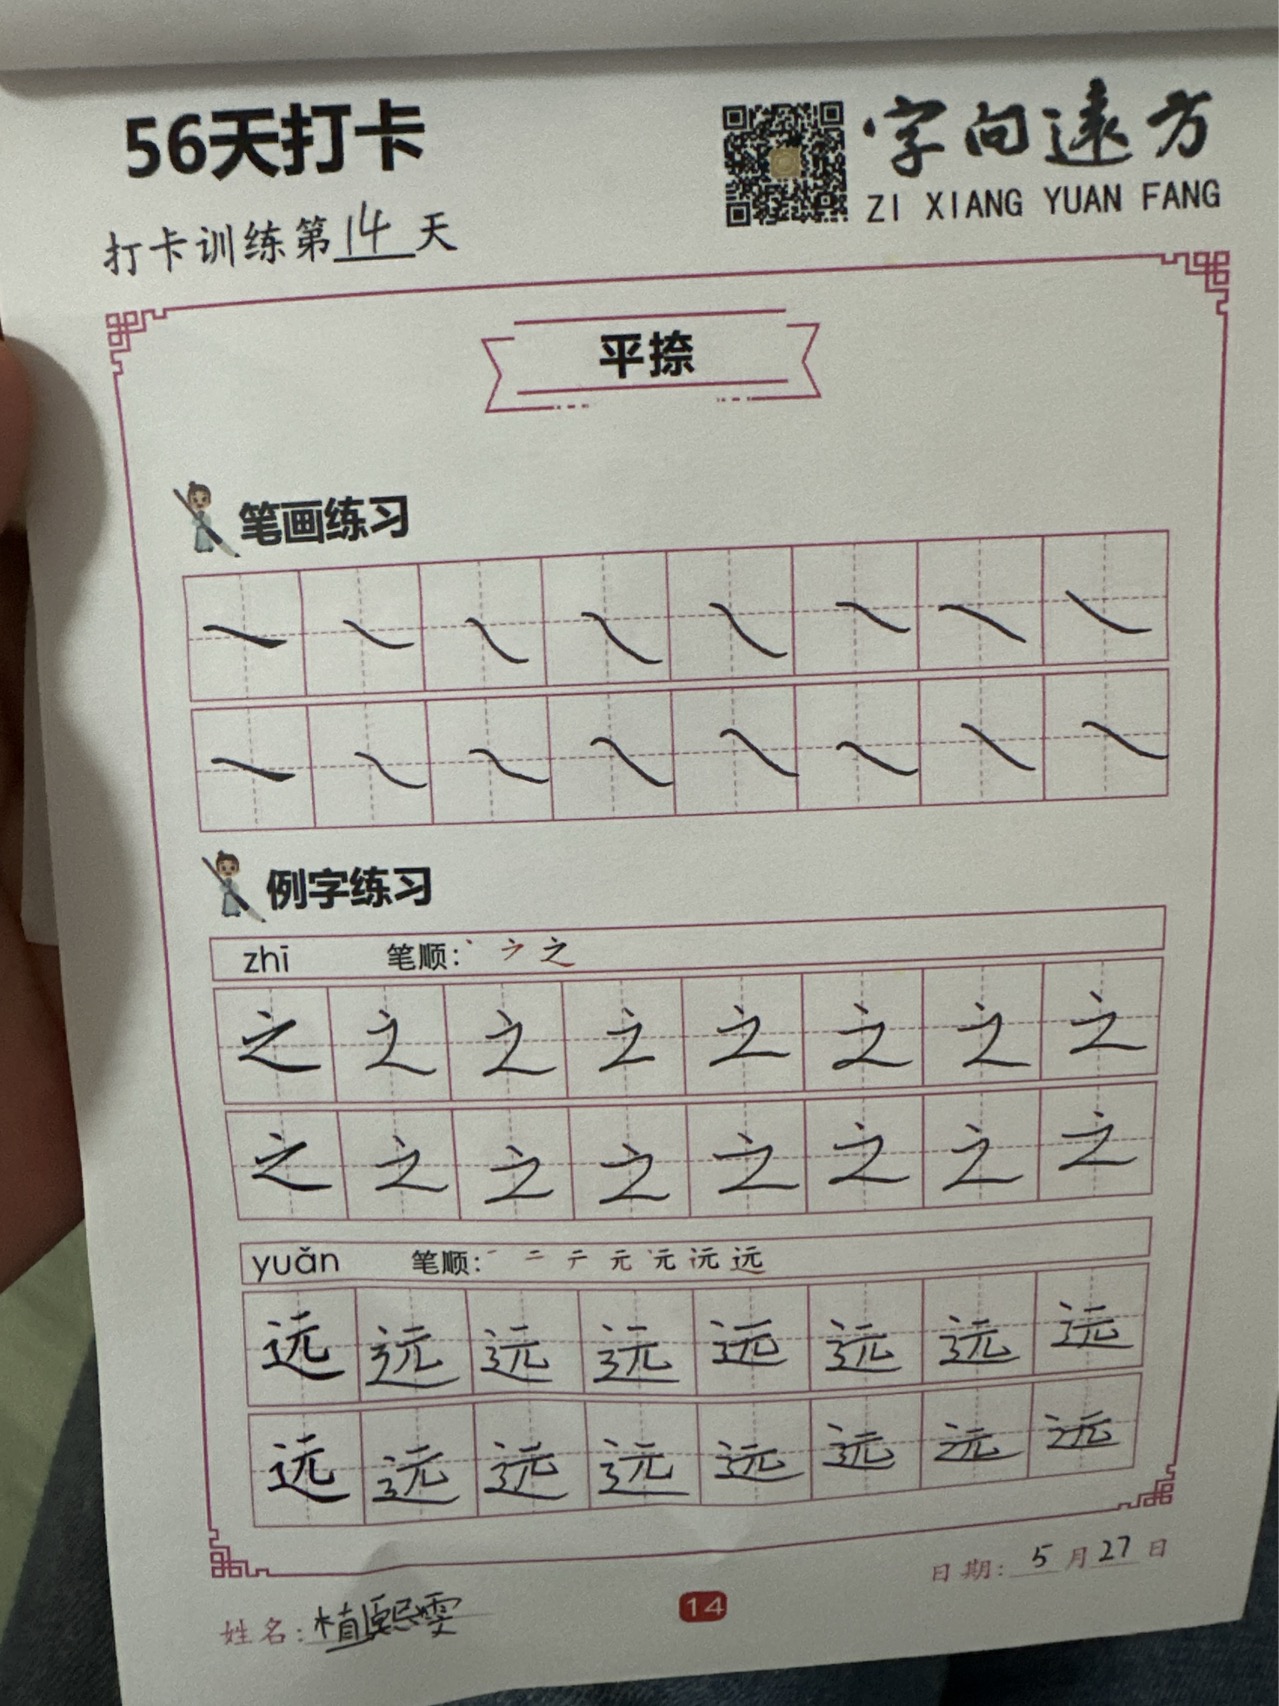 56天打卡
字向远方
ZI XIANG YUAN FANG
打卡训练第14天
平捺
笔画练习
例字练习
zhī 笔顺: 丶 ㇇ 之
之 之 之 之 之 之 之 之
之 之 之 之 之 之 之 之
yuǎn 笔顺: 一 二 テ 元 元 沅 远
远 远 远 远 远 远 远 远
远 远 远 远 远 远 远 远
日期: 5月27日
姓名: 植熙雯
14